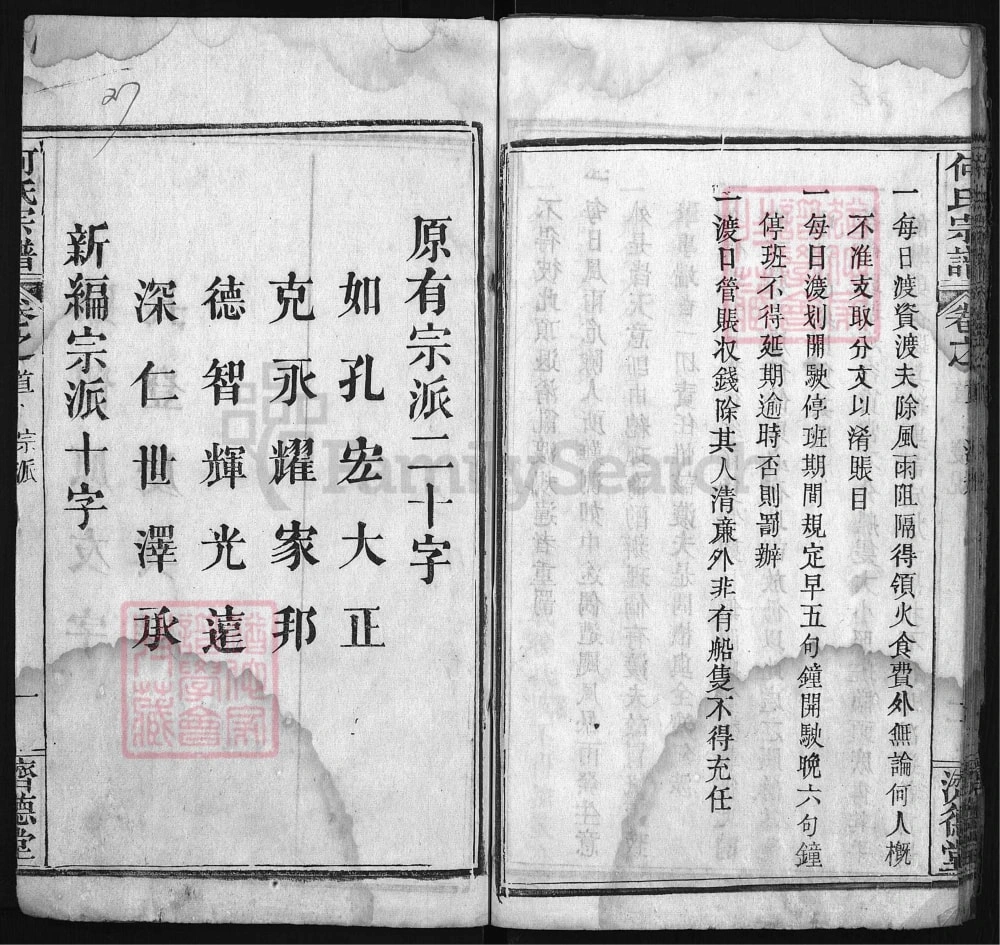 何氏宗譜
卷之首
一每日渡資渡夫除風雨阻隔得領火食費外無論何人概
不准支取分文以淆賬目
一每日渡划開駛停班期間規定早五句鐘開駛晚六句鐘
停班不得延期逾時否則罰辦
一渡日管賬收錢除其人清廉外非有船隻不得充任
濟德堂
原有宗派二十字
如孔宏大正
克永耀家邦
德智輝光遠
深仁世澤承
新編宗派十字
何氏宗譜
卷之首
宗派
一
濟德堂
27
FamilySearch